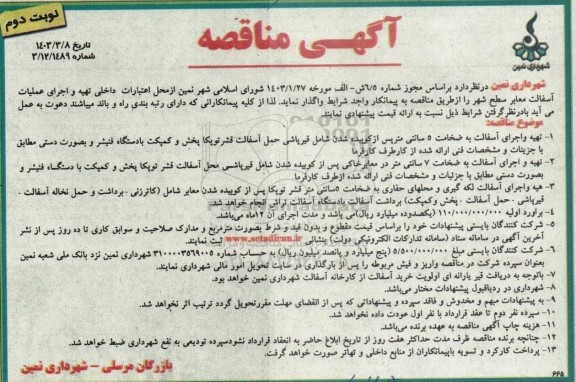 نوبت دوم
آگهـی مناقصه
شهرداری نمین
تاریخ ۱۴۰۳/۳/۸
شماره ۳/۱۲/۱۴۸۹
شهرداری نمین درنظردارد براساس مجوز شماره ۶/۵ش- الف مورخه ۱۴۰۳/۱/۲۷ شورای اسلامی شهر نمین ازمحل اعتبارات داخلی تهیه و اجرای عملیات
آسفالت معابر سطح شهر را ازطریق مناقصه به پیمانکار واجد شرایط واگذار نماید. لذا از کلیه پیمانکارانی که دارای رتبه بندی راه و باند میباشند دعوت به عمل
می آید بادرنظرگرفتن شرایط ذیل نسبت به ارائه قیمت پیشنهادی نمایند.
موضوع مناقصه:
۱- تهیه واجرای آسفالت به ضخامت ۵ سانتی متریس ازکوبیده شدن شامل قیرپاشی حمل آسفالت قشرتوپکا پخش و کمپکت بادستگاه فنیشر و بصورت دستی مطابق
با جزییات و مشخصات فنی ارائه شده از کارطرف کارفرما
۲- تهیه و اجرای آسفالت به ضخامت ۷ سانتی متر در معابرخاکی پس از کوبیده شدن شامل قیرپاشی حمل آسفالت قشر توپکا پخش و کمپکت با دستگاه فنیشر و
بصورت دستی مطابق با جزئیات و مشخصات فنی ارائه شده ازطرف کارفرما
۳- هیه واجرای آسفالت لکه گیری و محلهای حفاری به ضخامت ۵سانتی متر قشر توپکا پس از کوبیده شدن معابر شامل (کاترزنی - برداشت و حمل نخاله آسفالت -
قیرپاشی - حمل آسفالت - پخش وکمپکت) برداشت آسفالت بادستگاه آسفالت تراش انجام خواهد شد.
۴- برآورد اولیه ۱۱۰/۰۰۰/۰۰۰/۰۰۰ (یکصدوده میلیارد ریال)می باشد و مدت اجرای آن ۱۲ماه می‌باشد.
۵- شرکت کنندگان بایستی پیشنهادات خود را براساس قیمت مقطوع و بدون قید و شرط بصورت مترمربع و مدارک صلاحیت و سوابق کاری تا ده روز پس از نشر
آخرین آگهی در سامانه ستاد (سامانه تدارکات الکترونیکی دولت) بنشانی www.setadiran.ir ثبت نمایند.
۶- شرکت کنندگان بایستی مبلغ ۵/۵۰۰/۰۰۰/۰۰۰ (پنج میلیارد و پانصد میلیون ریال) به حساب شماره ۳۱۰۰۰۰۳۵۶۹۰۰۵ شهرداری نمین نزد بانک ملی شعبه نمین
بعنوان سپرده شرکت در مناقصه واریز و فیش مربوطه را پس از بارگذاری در سایت تحویل امور مالی شهرداری نمایند.
۷- باتوجه به دریافت قیر یارانه ای اولویت خرید آسفالت از کارخانه آسفالت شهرداری نمین خواهد بود.
۸- شهرداری در ردیاقبول پیشنهادات مختار می‌باشد.
۹- به پیشنهادات مبهم و مخدوش و فاقد سپرده و پیشنهاداتی که پس از انقضای مهلت مقررتحویل گردد ترتیب اثر نخواهد شد.
۱۰- سپرده نفر دوم تا عقد قرارداد با نفر اول عودت داده نخواهد شد.
۱۱- هزینه چاپ آگهی مناقصه به عهده برنده می‌باشد.
۱۲- چنانچه برنده مناقصه ظرف مدت حداکثر هفت روز از تاریخ ابلاغ حاضر به انعقاد قرارداد نشودسپرده تودیعی به نفع شهرداری ضبط خواهد شد.
۱۳- پرداخت کارکرد و تسویه باپیمانکاران از منابع داخلی و تهاتر صورت خواهد گرفت.
بازرگان مرسلی - شهرداری نمین
۶۶۵